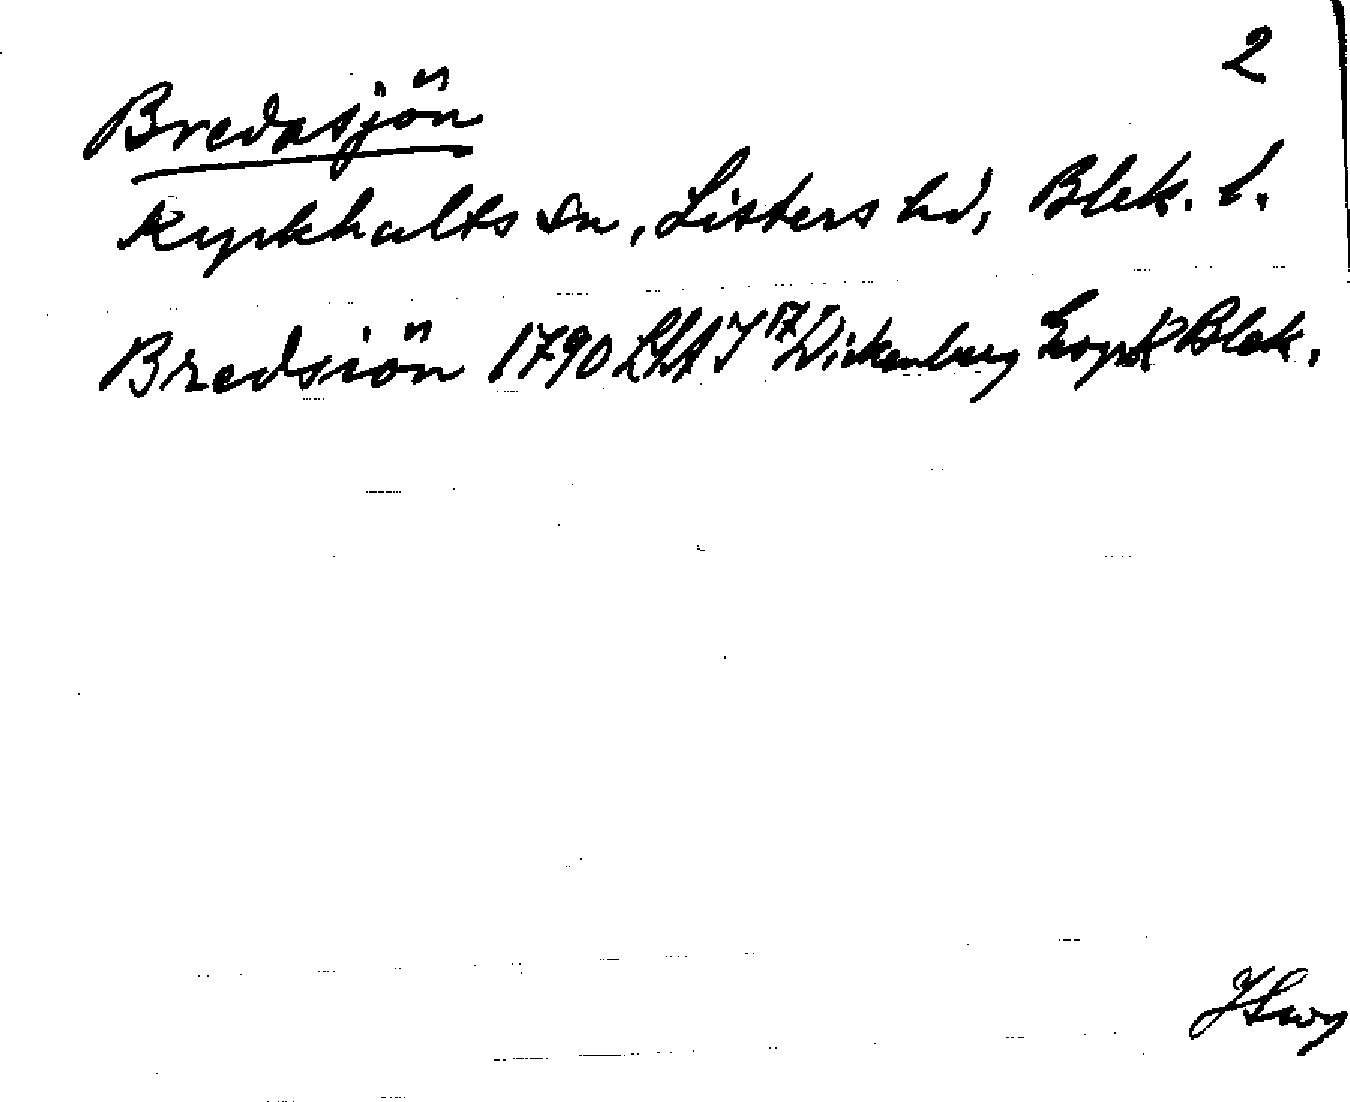 2
Bredasjön
Kyrkhults sn, Listers hd, Blek. l.
Bredsiön 1790 LMA I 17 Wickenberg Blek.